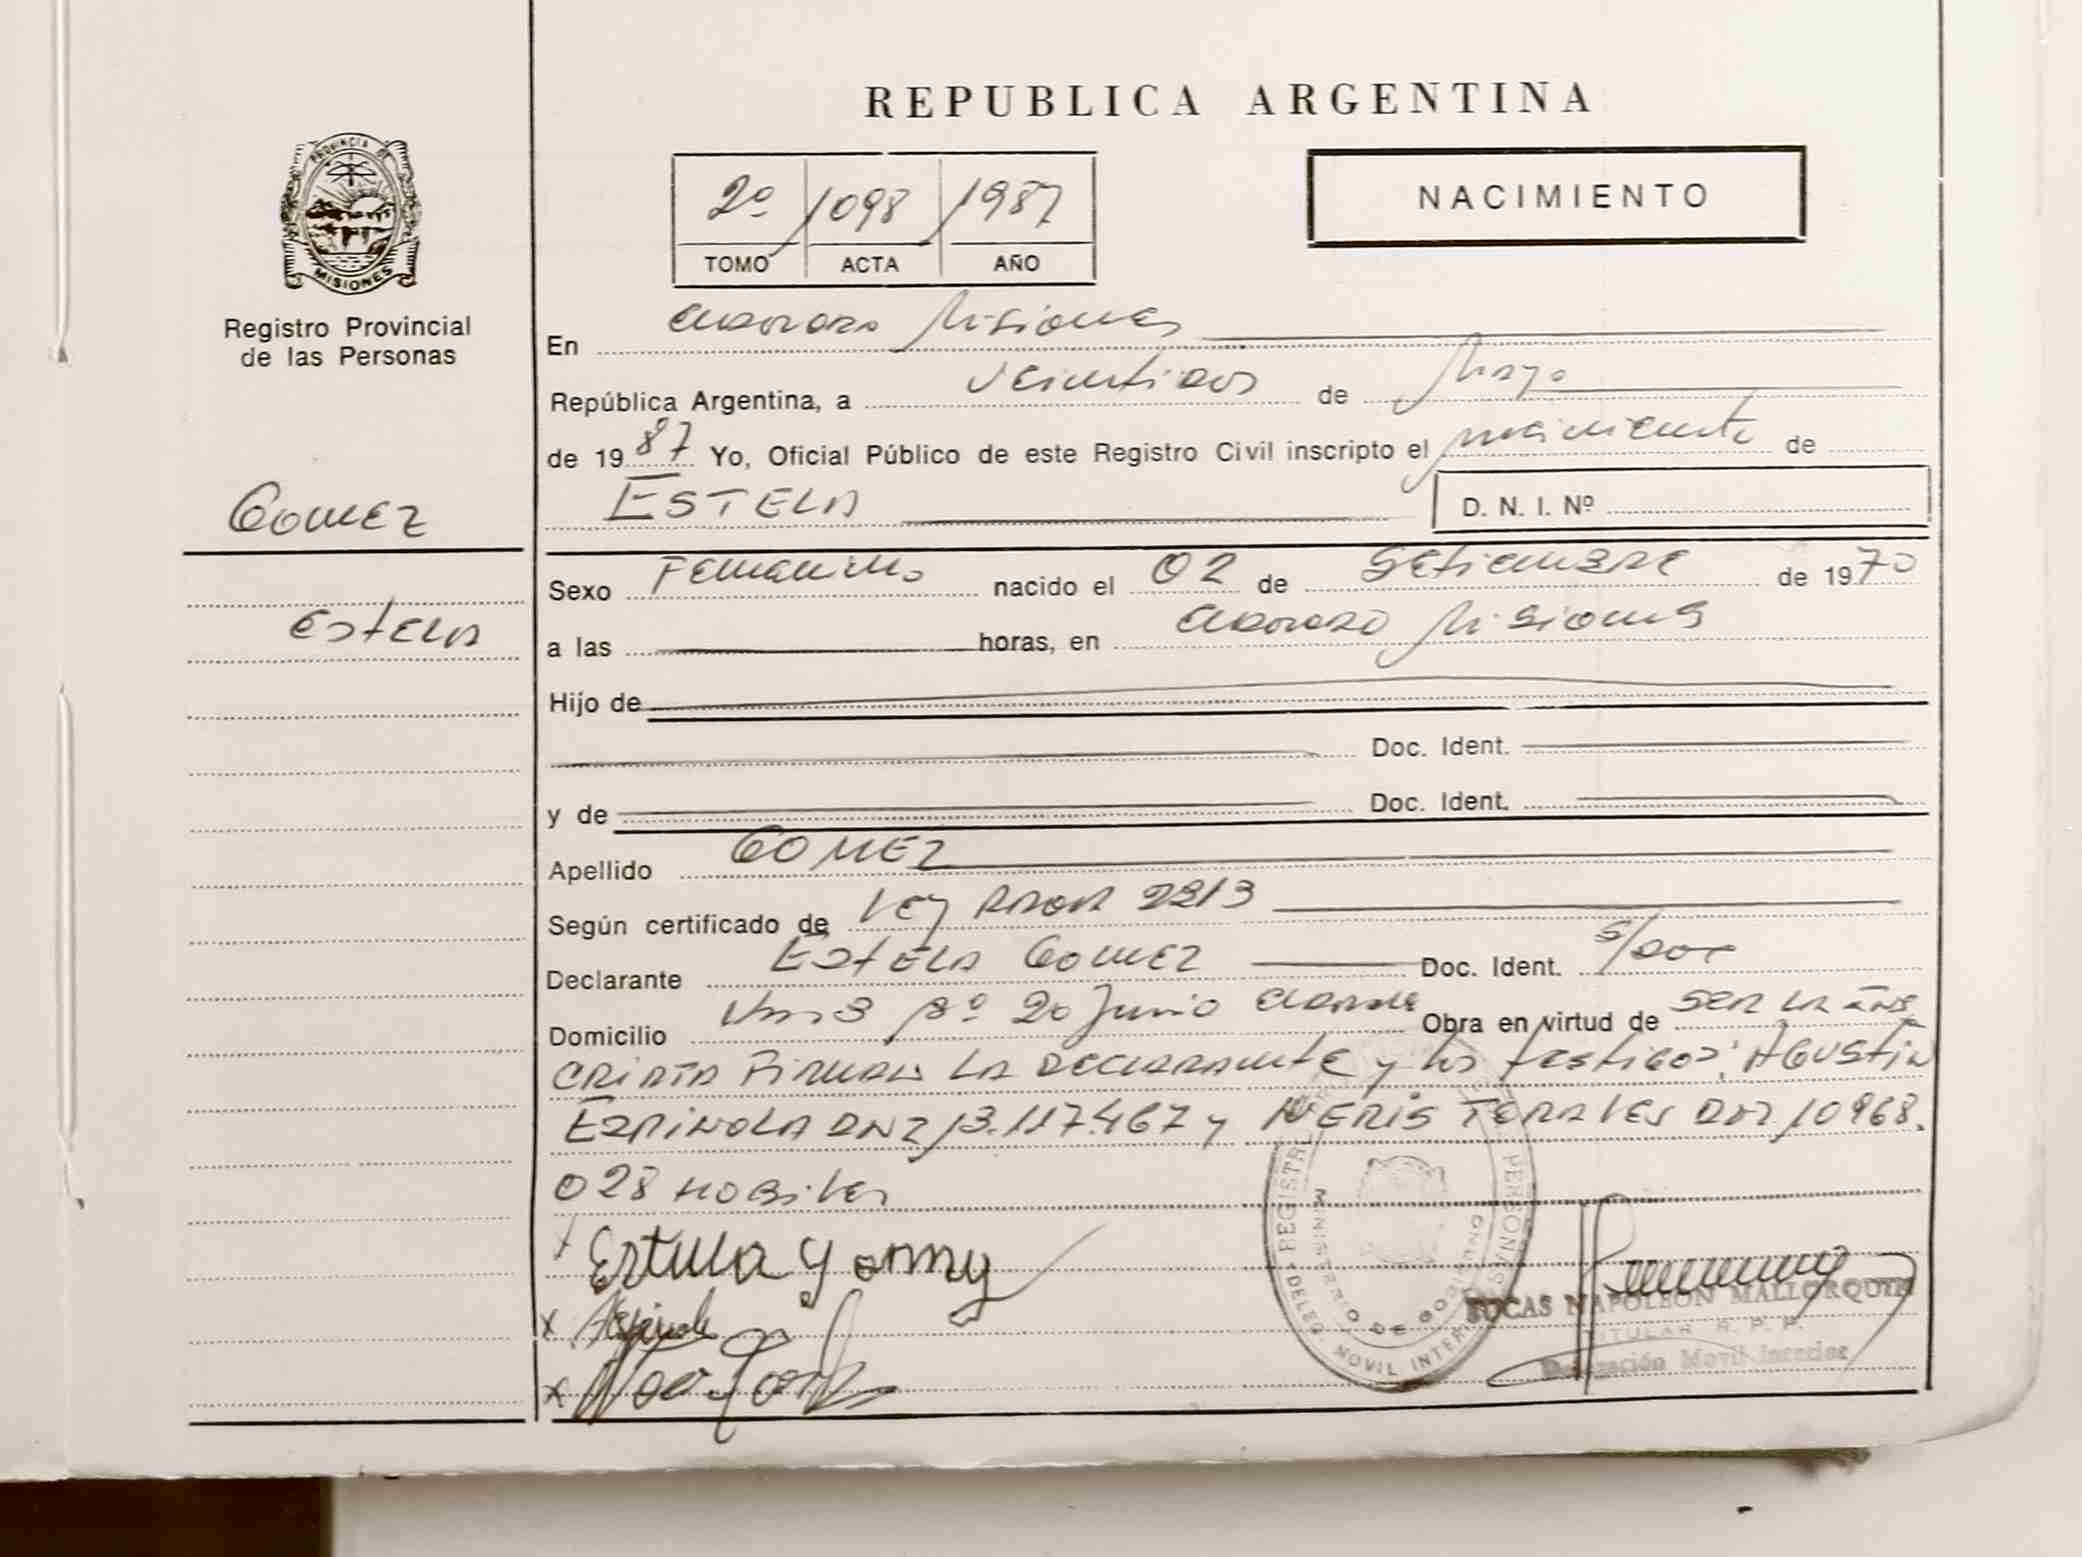 REPUBLICA ARGENTINA
PROVINCIA DE
MISIONES
Registro Provincial
de las Personas
2º 1098 1987
TOMO ACTA AÑO
NACIMIENTO
En Misiones
República Argentina, a veintidos de Mayo
de 1987 Yo, Oficial Público de este Registro Civil inscripto el nacimiento de
ESTELA D. N. I. Nº
Gomez
Estela
Sexo Femenino nacido el 02 de Setiembre de 1970
a las horas, en Misiones
Hijo de
Doc. Ident.
y de Doc. Ident.
Apellido GOMEZ
Según certificado de Ley 2213
Declarante Estela Gomez Doc. Ident. S/Doc
Domicilio 20 Junio Obra en virtud de ser la ins
cripta Firman la declarante y los testigos: Agustin
Espinola DNI 13.117.467 y NERIS DNI 10968.
028 Hobiles
X
X
LUCAS NAPOLEON MALLORQUIN
TITULAR R. P. P.
Delegación Movil Interior
MINISTERIO DE GOBIERNO
DELEG MOVIL INTERIOR